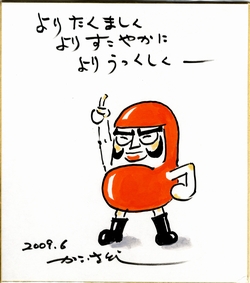 よりたくましく
よりすこやかに
よりうつくしく—
2009.6
かこさとし